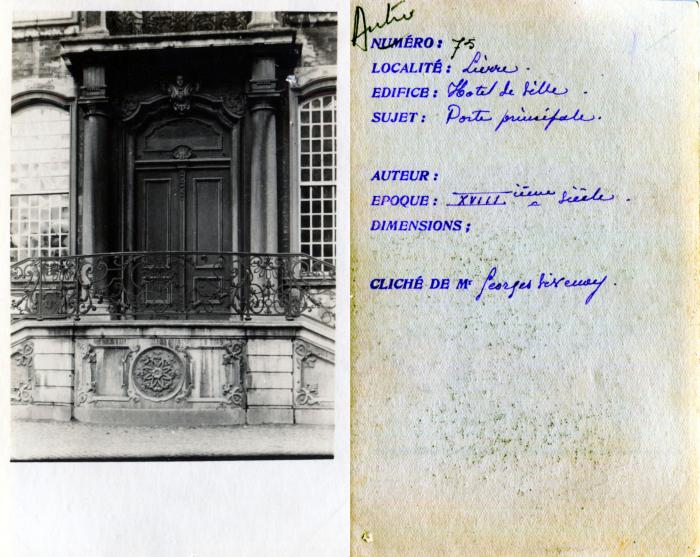 Autre
NUMÉRO : 75
LOCALITÉ : Lierre .
EDIFICE : Hotel de Ville .
SUJET : Porte principale .
AUTEUR :
EPOQUE : XVIII ième Siècle .
DIMENSIONS ;
CLICHÉ DE Mr Georges